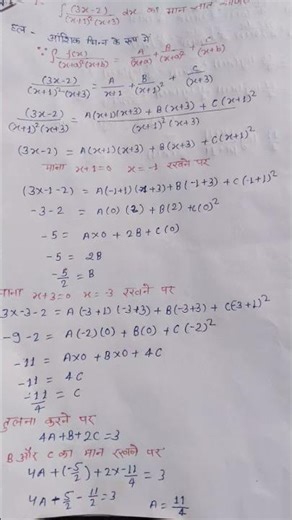 ∫ (3x-2)/((x+1)²(x+3)) dx का मान
हल - आंशिक भिन्न के रूप में
∵ ∫ f(x)/((x+a)²(x+b)) = A/(x+a) + B/(x+a)² + C/(x+b)
(3x-2)/((x+1)²(x+3)) = A/(x+1) + B/(x+1)² + C/(x+3)
(3x-2)/((x+1)²(x+3)) = A(x+1)(x+3) + B(x+3) + C(x+1)²/(x+1)²(x+3)
(3x-2) = A(x+1)(x+3) + B(x+3) + C(x+1)²
माना x+1=0 x = -1 रखने पर
(3x-1-2) = A(-1+1)(x+3) + B(-1+3) + C(-1+1)²
-3-2 = A(0)(2) + B(2) + C(0)²
-5 = A×0 + 2B + C(0)
-5 = 2B
-5/2 = B
माना x+3=0 x = -3 रखने पर
3x-3-2 = A(-3+1)(-3+3) + B(-3+3) + C(-3+1)²
-9-2 = A(-2)(0) + B(0) + C(-2)²
-11 = A×0 + B×0 + 4C
-11 = 4C
-11/4 = C
तुलना करने पर
4A+B+2C=3
B और C का मान रखने पर
4A+(-5/2)+2×-11/4 = 3
4A+5/2-11/2=3 A=11/4